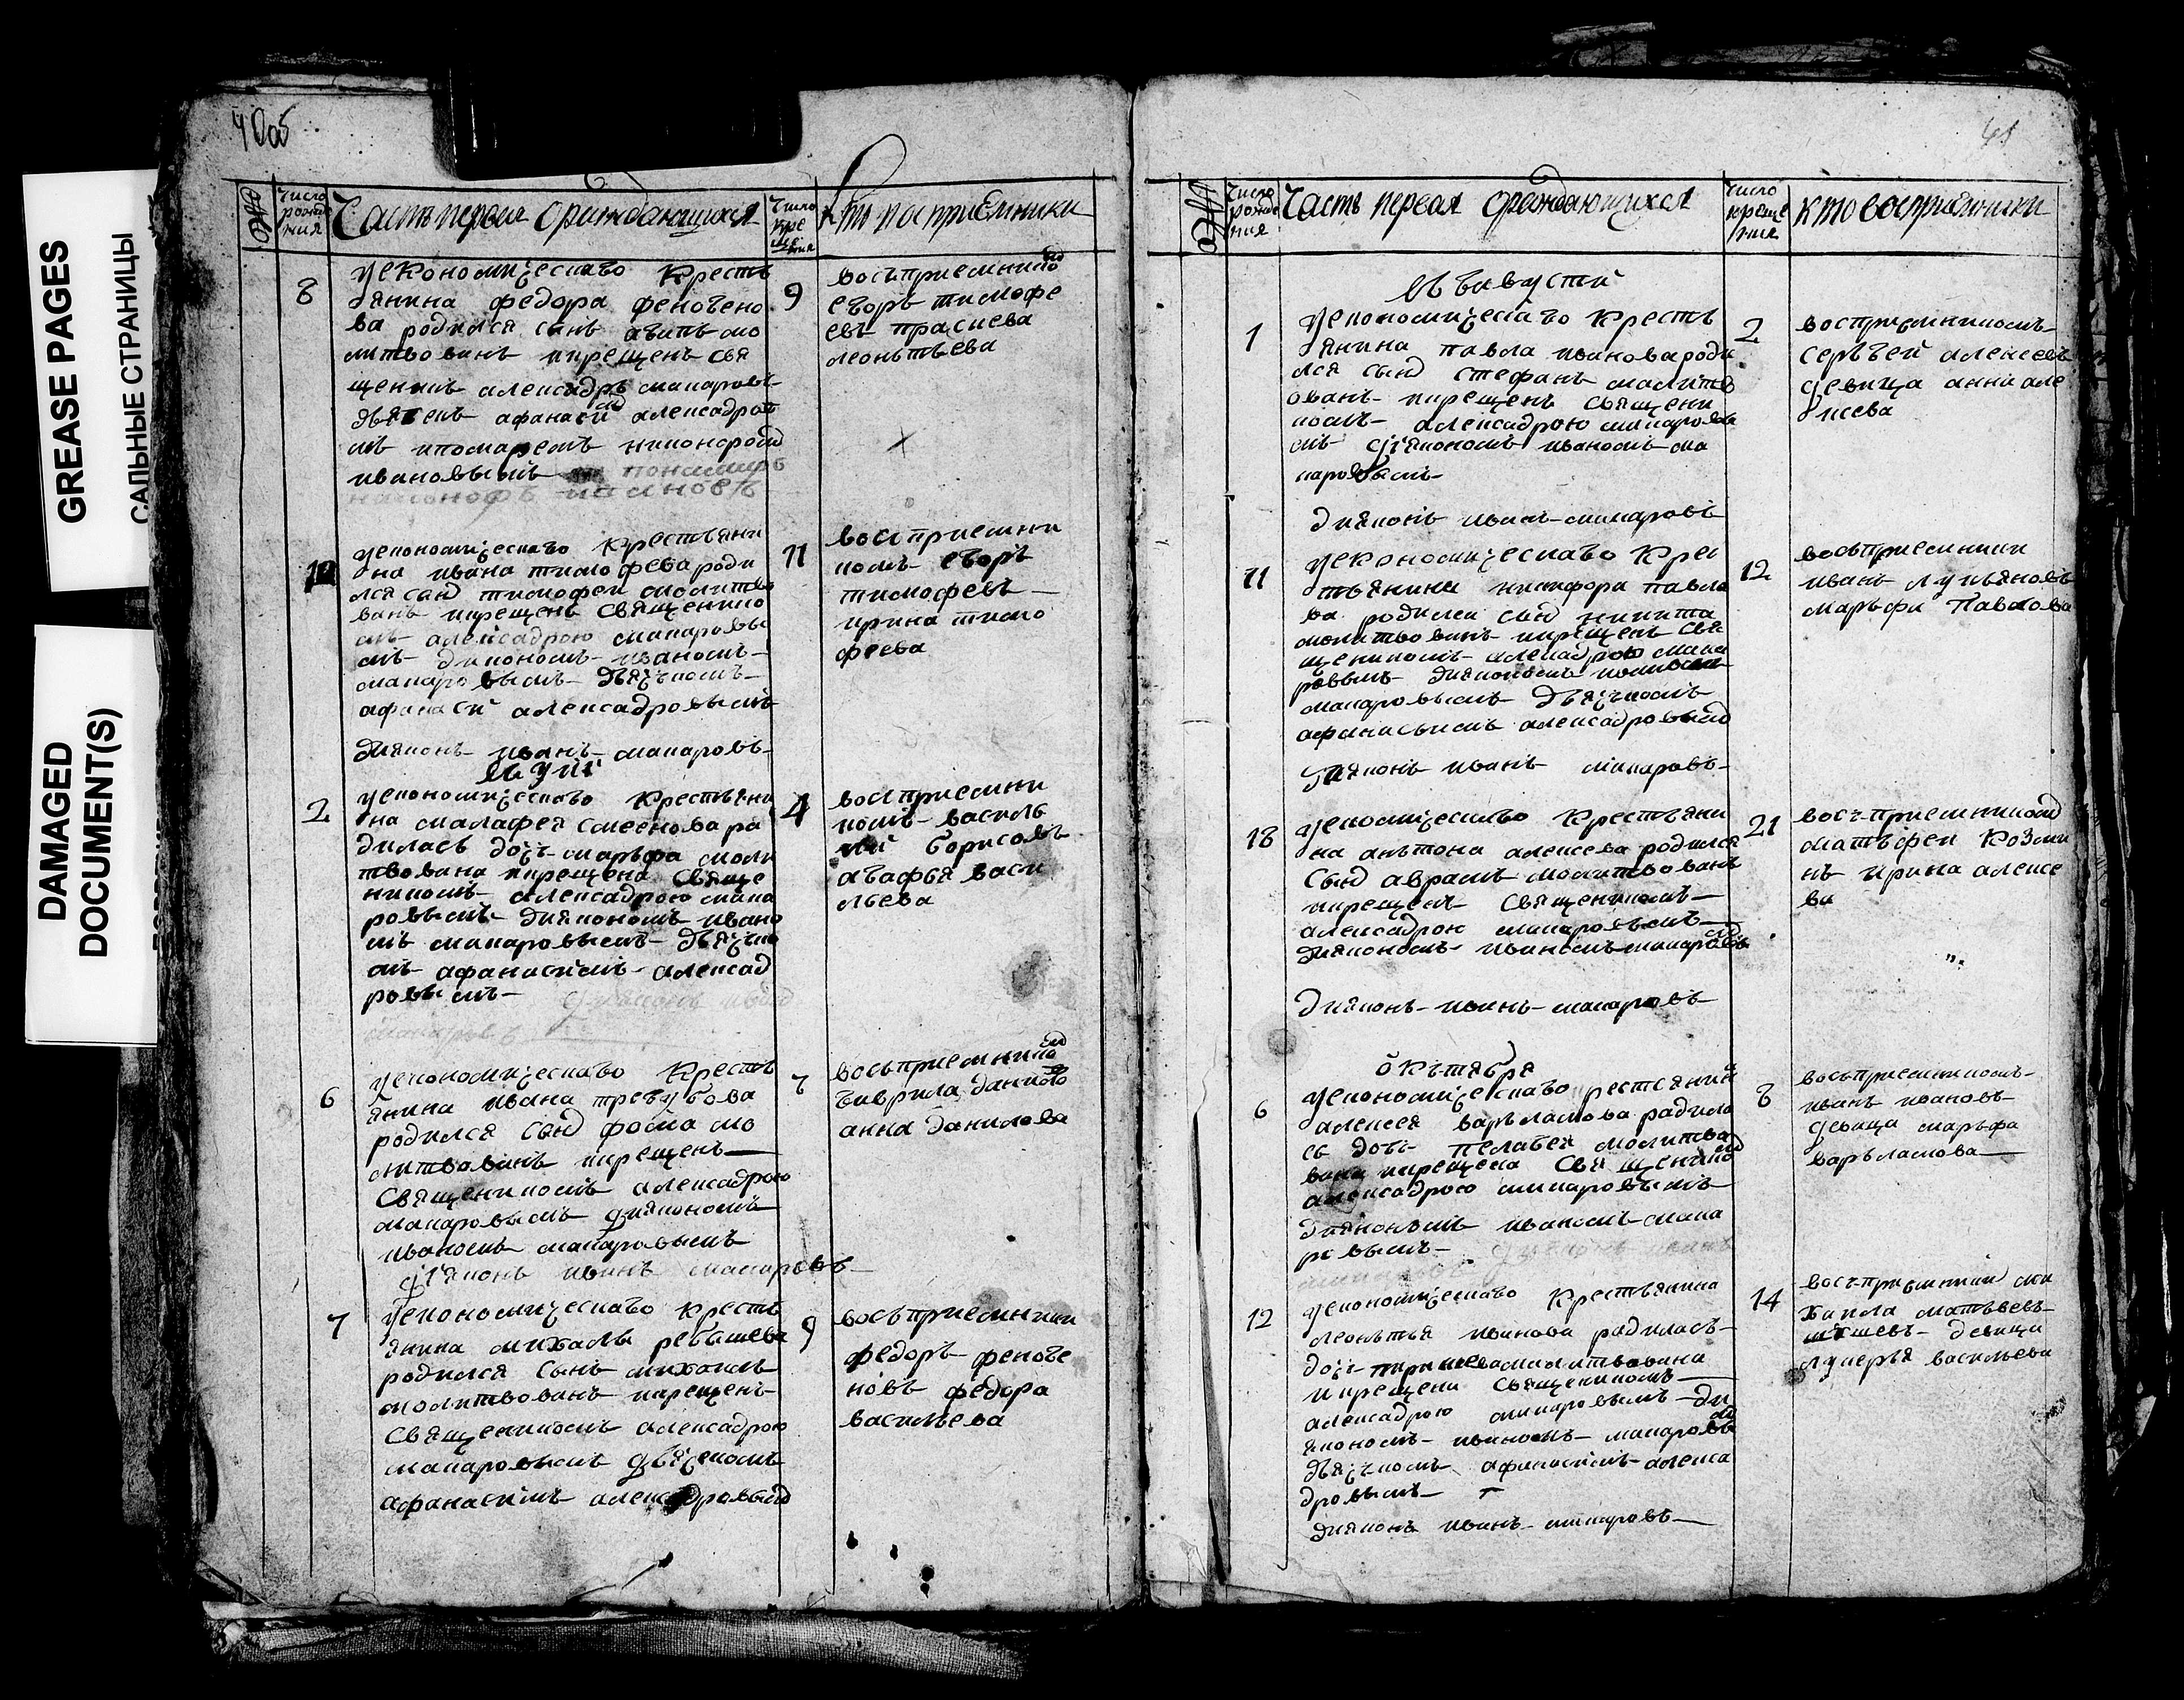 GREASE PAGES
САЛЬНЫЕ СТРАНИЦЫ
DAMAGED
DOCUMENT(S)
40об
число рождения
Часть первая о раждающихся
число крещения
Кто восприемники
8
уекономическаго Кресть
янина федора феногено
ва родился сынъ агипъ мо
литвованъ икрещенъ свя
щеникъ александръ макаровъ
дьячекъ афанасий алексадров
мъ ипомаремъ никоноромъ
ивановымъ
9
восъприемникомъ
егоръ тимофе
евъ праснева
леонътьева
10
уекономическаго Крестьяни
на ивана тимофеева роди
лся сынъ тимофеи молитво
ванъ икрещенъ священико
мъ алексадрою макаровы
мъ диконом иваномъ
макаровымъ дьячкомъ
афанасий алексадровымъ
дияконъ иванъ макаровъ
11
восприемни
комъ егоръ
тимофеевъ
ирина тимо
феева
2
уекономическаго Крестьяни
на малафея смеенова ра
дилась дочь маръфа моли
твована икрещена Свяще
никомъ алексадрою мака
ровымъ дияконом ивано
мъ макаровымъ дьячко
мъ афанасиемъ алексад
ровымъ
4
восприемни
комъ василь
ий борисовъ
агафья васи
льева
6
уекономическаго Кресть
янина ивана трегубова
родился сынъ фома мо
литвованъ икрещенъ
Священикомъ алексадрою
макаровымъ дияконом
иваномъ макаровымъ
дияконъ иванъ макаровъ
7
восъприемникомъ
гаврила данилов
анна данилова
7
уекономическаго Кресть
янина михаилы ребашева
родился Сынъ михаилъ
молитвованъ икрещенъ
Священикомъ алексадрою
макаровымъ дьячекомъ
афанасиимъ алексадровымъ
9
восъприемники
федоръ феноге
новъ федора
васильева
41
число рождения
Часть первая о раждающихся
число крещения
кто восприемники
въ августа
1
уекономическаго Кресть
янина павла иванова роди
лся сынъ стефанъ молитв
ованъ икрещенъ священи
комъ алексадрою макаровы
мъ дияконом иваномъ ма
каровымъ
дияконъ иванъ макаровъ
2
восприемникомъ
серьгей алексеевъ
девица анна але
ксева
11
уекономическаго Крес
тьянина никифора павло
ва родился сынъ никита
молитвованъ икрещенъ свя
щеникомъ алексадрою мака
ровымъ дияконом
макаровымъ дьячкомъ
афанасьимъ алексадровымъ
дияконъ иванъ макаровъ
12
восъприемники
иванъ лукьяновъ
маръфа Павлова
18
уекономическаго Крестьяни
на анътона алексеева родился
Сынъ аврамъ молитвованъ
икрещенъ Священикомъ
алексадрою макаровымъ
дияконом иваномъ макаровымъ
дияконъ иванъ макаровъ
21
восъприемником
матьфеи Козми
нъ ирина алексе
ва
окътября
6
уекономическаго рестьянин
алексея варъламова радила
сь дочь пелагея молитво
вана икрещена Священико
алексадрою макаровымъ
дияконом иваномъ мака
ровымъ
8
восъприемникомъ
иванъ ивановъ
девица маръфа
варъламова
12
уекономическаго Крестьянина
леонътья иванова радилась
дочь молитвована
икрещена Священикомъ
алексадрою макаровымъ ди
якономъ иваномъ макаровы
дьячкомъ афанасиимъ алекса
дровымъ
дияконъ иванъ макаровъ
14
восъприемники ми
хаила матьвеевъ
девица
лукерья васильева